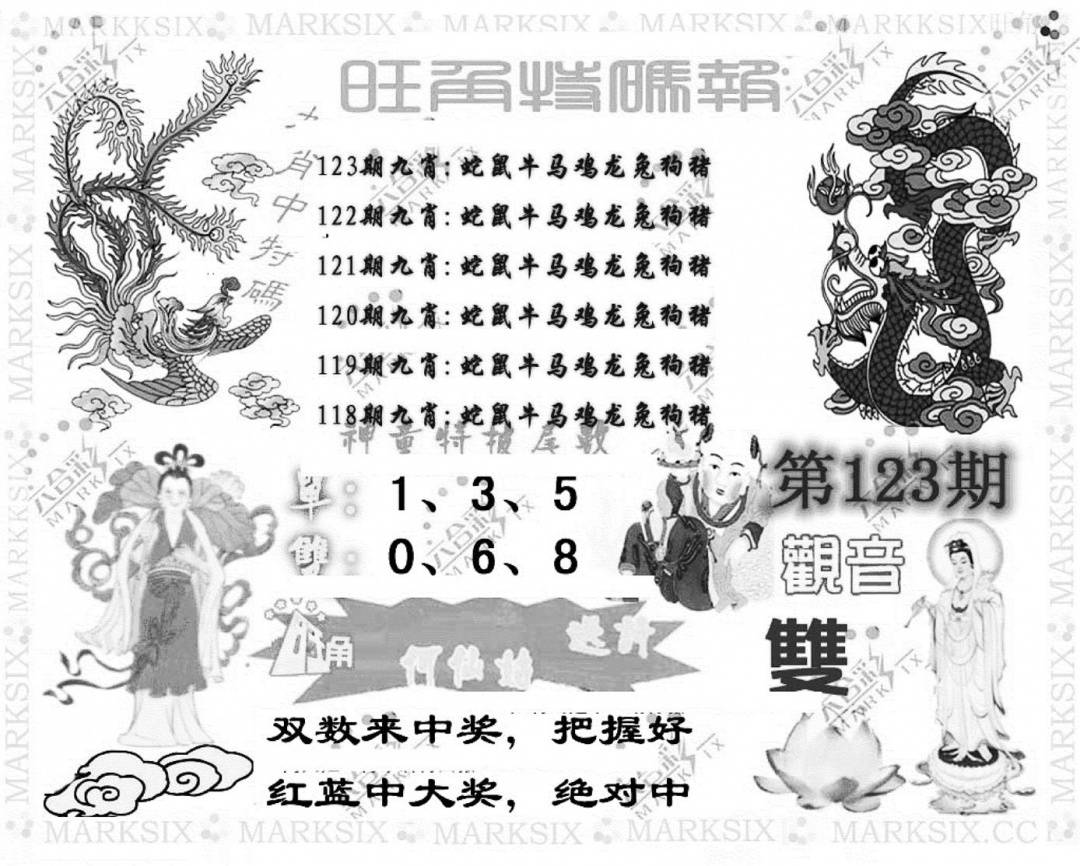 MARKSIX MARKSIX MARKSIX MARKSIX MARKKSIX
旺角特碼報
肖中特碼
123期九肖:蛇鼠牛马鸡龙兔狗猪
122期九肖:蛇鼠牛马鸡龙兔狗猪
121期九肖:蛇鼠牛马鸡龙兔狗猪
120期九肖:蛇鼠牛马鸡龙兔狗猪
119期九肖:蛇鼠牛马鸡龙兔狗猪
118期九肖:蛇鼠牛马鸡龙兔狗猪
神童特报尾数
單: 1、3、5
雙: 0、6、8
第123期
觀音
雙
旺角
何仙姑
双数来中奖，把握好
红蓝中大奖，绝对中
MARKSIX MARKSIX MARKSIX MARKSIX MARKSIX.CC